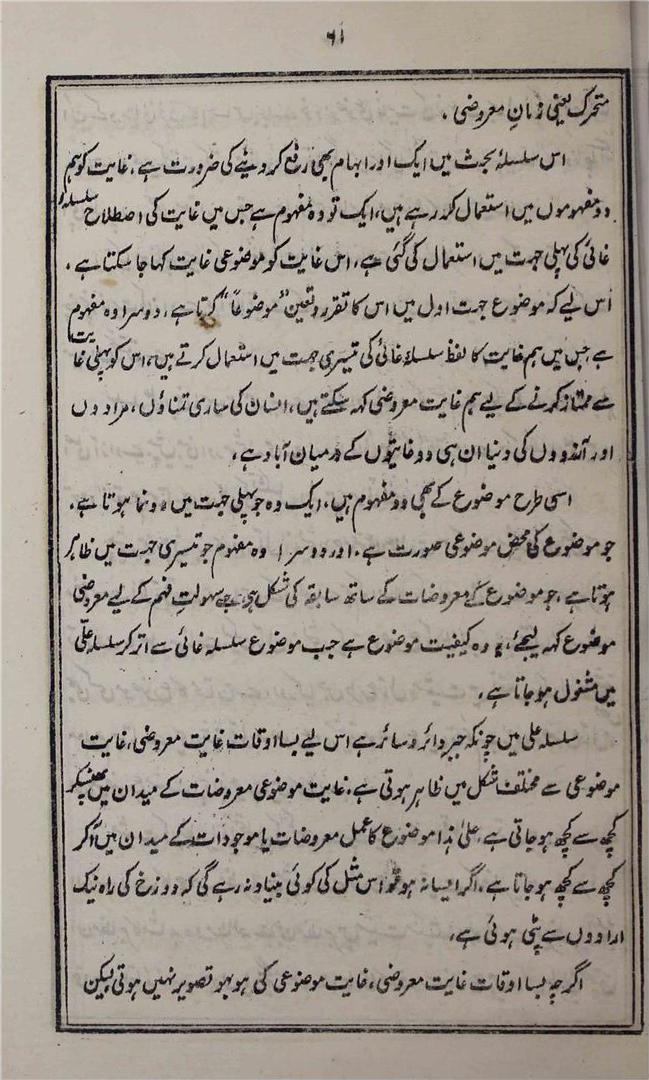 ۶۱
متحرک یعنی زمانِ معروضی۔
اس سلسلۂ بحث میں ایک اور ابہام بھی رفع کر دینے کی ضرورت ہے۔ غایت کو ہم
دو مفہوموں میں استعمال کر رہے ہیں، ایک تو وہ مفہوم ہے جس میں غایت کی اصطلاح سلسلۂ
غائی کی پہلی جہت میں استعمال کی گئی ہے، اس غایت کو موضوعی غایت کہا جا سکتا ہے۔
اس لیے کہ موضوع جہت اول میں اس کا تقرر و تعین "موضوعاً" کرتا ہے، دوسرا وہ مفہوم
ہے جس میں ہم غایت کا لفظ سلسلۂ غائی کی تیسری جہت میں استعمال کرتے ہیں، اس کو پہلی غایت
سے ممتاز کرنے کے لیے ہم غایت معروضی کہہ سکتے ہیں، انسان کی ساری تمناؤں، مرادوں
اور آرزووں کی دنیا ان ہی دو غایتوں کے درمیان آباد ہے،
اسی طرح موضوع کے بھی دو مفہوم ہیں، ایک وہ جو پہلی جہت میں رونما ہوتا ہے۔
جو موضوع کی محض موضوعی صورت ہے۔ اور دوسرا وہ مفہوم جو تیسری جہت میں ظاہر
ہوتا ہے، جو موضوع کے معروضات کے ساتھ سابقہ کی شکل ہی ہے سہولتِ فہم کے لیے معروضی
موضوع کہہ لیجئے، یہ وہ کیفیت موضوع ہے جب موضوع سلسلہ غائی سے اتر کر سلسلہ علّی
میں مشغول ہو جاتا ہے،
سلسلہ علی میں چونکہ جبر دائر و سائر ہے اس لیے بسا اوقات غایت معروضی، غایت
موضوعی سے مختلف شکل میں ظاہر ہوتی ہے، غایت موضوعی معروضات کے میدان میں پھنسکر
کچھ سے کچھ ہو جاتی ہے، علیٰ ہذا موضوع کا عمل معروضات یا موجودات کے میدان میں آ کر
کچھ سے کچھ ہو جاتا ہے، اگر ایسا نہ ہو تو اس مثل کی کوئی بنیاد نہ رہے گی کہ دوزخ کی راہ نیک
ارادوں سے پٹی ہوئی ہے،
اگرچہ بسا اوقات غایت معروضی، غایت موضوعی کی ہوبہو تصویر نہیں ہوتی لیکن